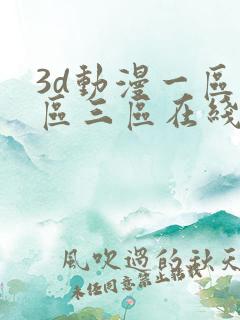 3d動漫一區
區三區在綫
風吹過的秋天
未經同意禁止轉載